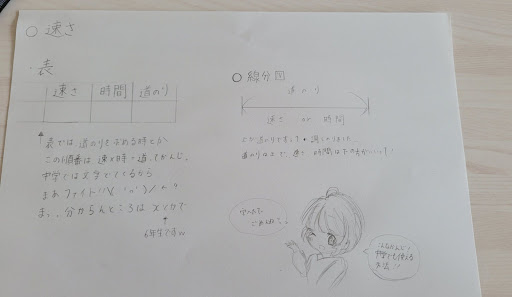 ○ 速さ
・表
速さ 時間 道のり
表では 道のりを求める時とか
この順番は 速×時=道、てかんじ。
中学では文字でてくるから
まあファイト!!
ま、、分からんところは xとかで
6年生ですw
○ 線分図
道のり
速さ or 時間
道のりは上で、速さ 時間は下の方がいい!
こんなかんじ!
中学でも使える
方法!!